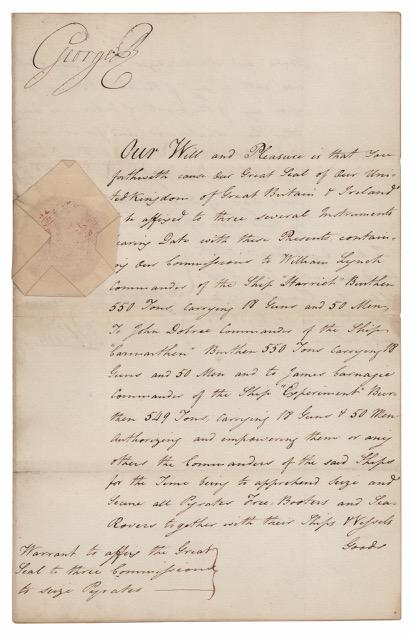 George R
Our Will and Pleasure is that You
forthwith cause our Great Seal of Our Uni-
ted Kingdom of Great Britain & Ireland
to be affixed to three several Instruments
bearing Date with these Presents, contain-
ing Our Commissions to William Lynch
Commander of the Ship "Harriet" Burthen
550 Tons, carrying 18 Guns and 50 Men,
To John Dobree Commander of the Ship
"Carmarthen" Burthen 550 Tons carrying 18
Guns and 50 Men and to James Carnegie
Commander of the Ship "Experiment" Bur-
then 549 Tons, carrying 18 Guns & 50 Men
Authorizing and empowering them or any
others the Commanders of the said Ships
for the Time being to apprehend seize and
Secure all Pyrates Free-Booters and Sea-
Rovers together with their Ships & Vessels
Goods
Warrant to affix the Great
Seal to three Commissions
to seize Pyrates